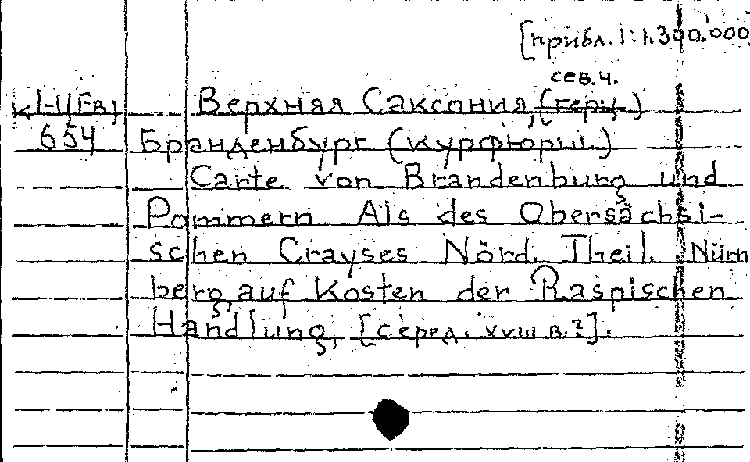 [прибл. 1:1.300.000
сев.ч.
Верхная Саксония, (герц.)
654 Бранденбург (курфюрш.)
Carte von Brandenburg und
Pommern Als des Obersächsi-
schen Crayses Nörd. Theil. Nürn
berg, auf Kosten der Raspischen
Handlung, [серед. XVIII в.?].